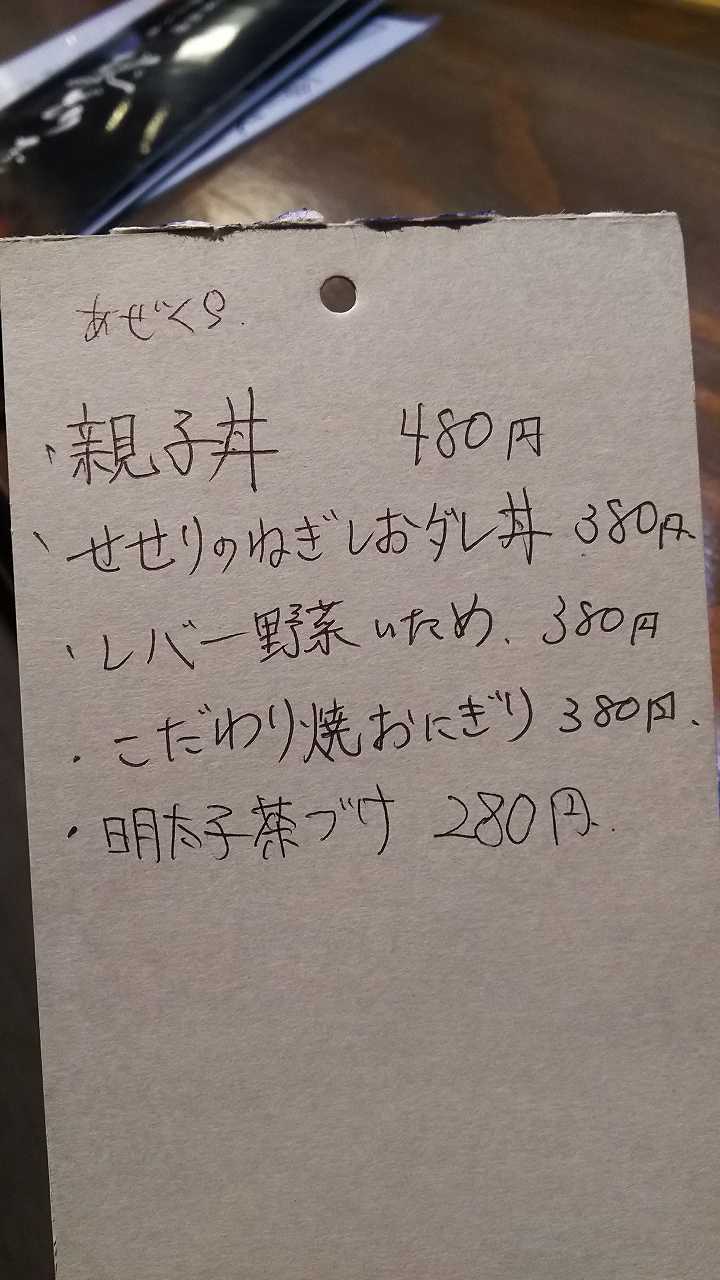 あぜくら.
・親子丼 480円
・せせりのねぎしおダレ丼 380円
・レバー野菜いため. 380円
・こだわり焼おにぎり 380円.
・明太子茶づけ 280円.